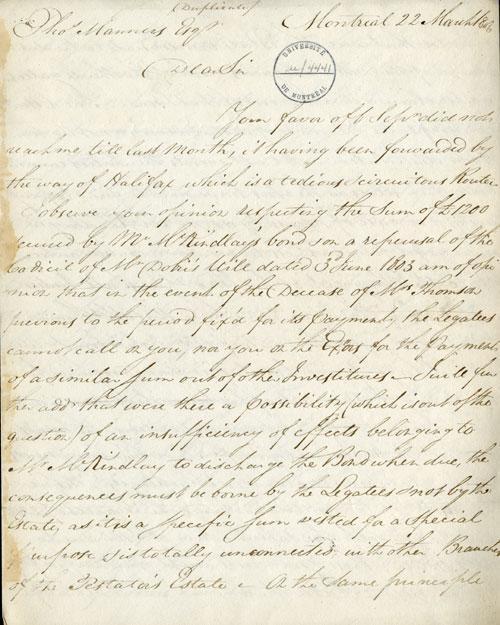 (Duplicate)
Thos. Manners Esqr. Montréal 22 March
Dear Sir
UNIVERSITÉ
DE MONTRÉAL
Your favor of 1 Sepr. did not
reach me till last Month, it having been forwarded by
the way of Halifax which is a tedious & circuitous Route
I observe your opinion respecting the Sum of £1200
secured by Mr. McKindlay's bond & on a reperusal of the
Codicil of Mr. Dobie's Will dated 3d June 1803 am of opi
nion that in the event of the Decease of Mrs. Thomson
previous to the period fix'd for its Payment, the Legatees
cannot call on you, nor you on the Exōrs for the Payment
of a similar Sum out of other Investitures — I will fur
ther add that were there a Possibility (which is out of the
question) of an insufficiency of effects belonging to
Mr. McKindlay to discharge the Bond when due, the
consequences must be borne by the Legatees & not by the
Estate, as it is a specific Sum vested for a special
Purpose & is totally unconnected with other Branches
of the Testator's Estate — On the same principle